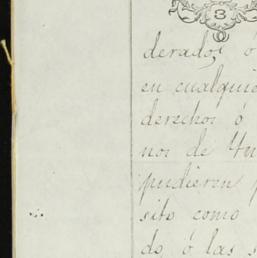 8
derados ó
en cualquie
derechos ó
nos de
pudieren
sito como
do ó las s